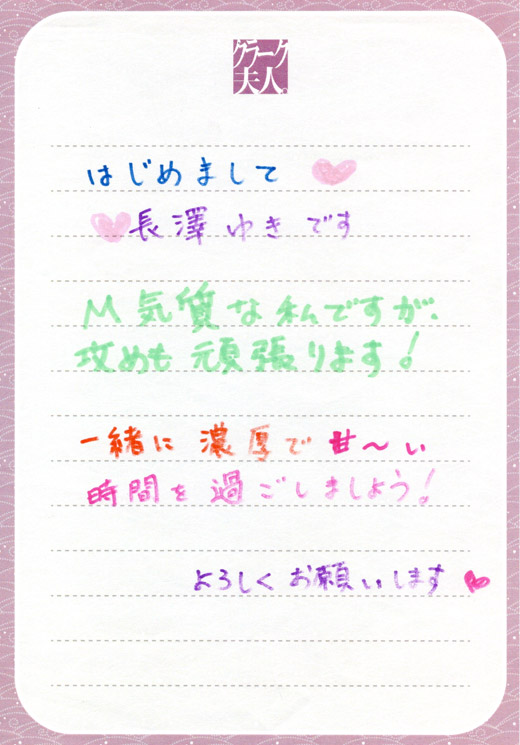 クラーク
夫人。
はじめまして
長澤ゆきです
M気質な私ですが、
攻めも頑張ります!
一緒に濃厚で甘〜い
時間を過ごしましょう!
よろしくお願いします